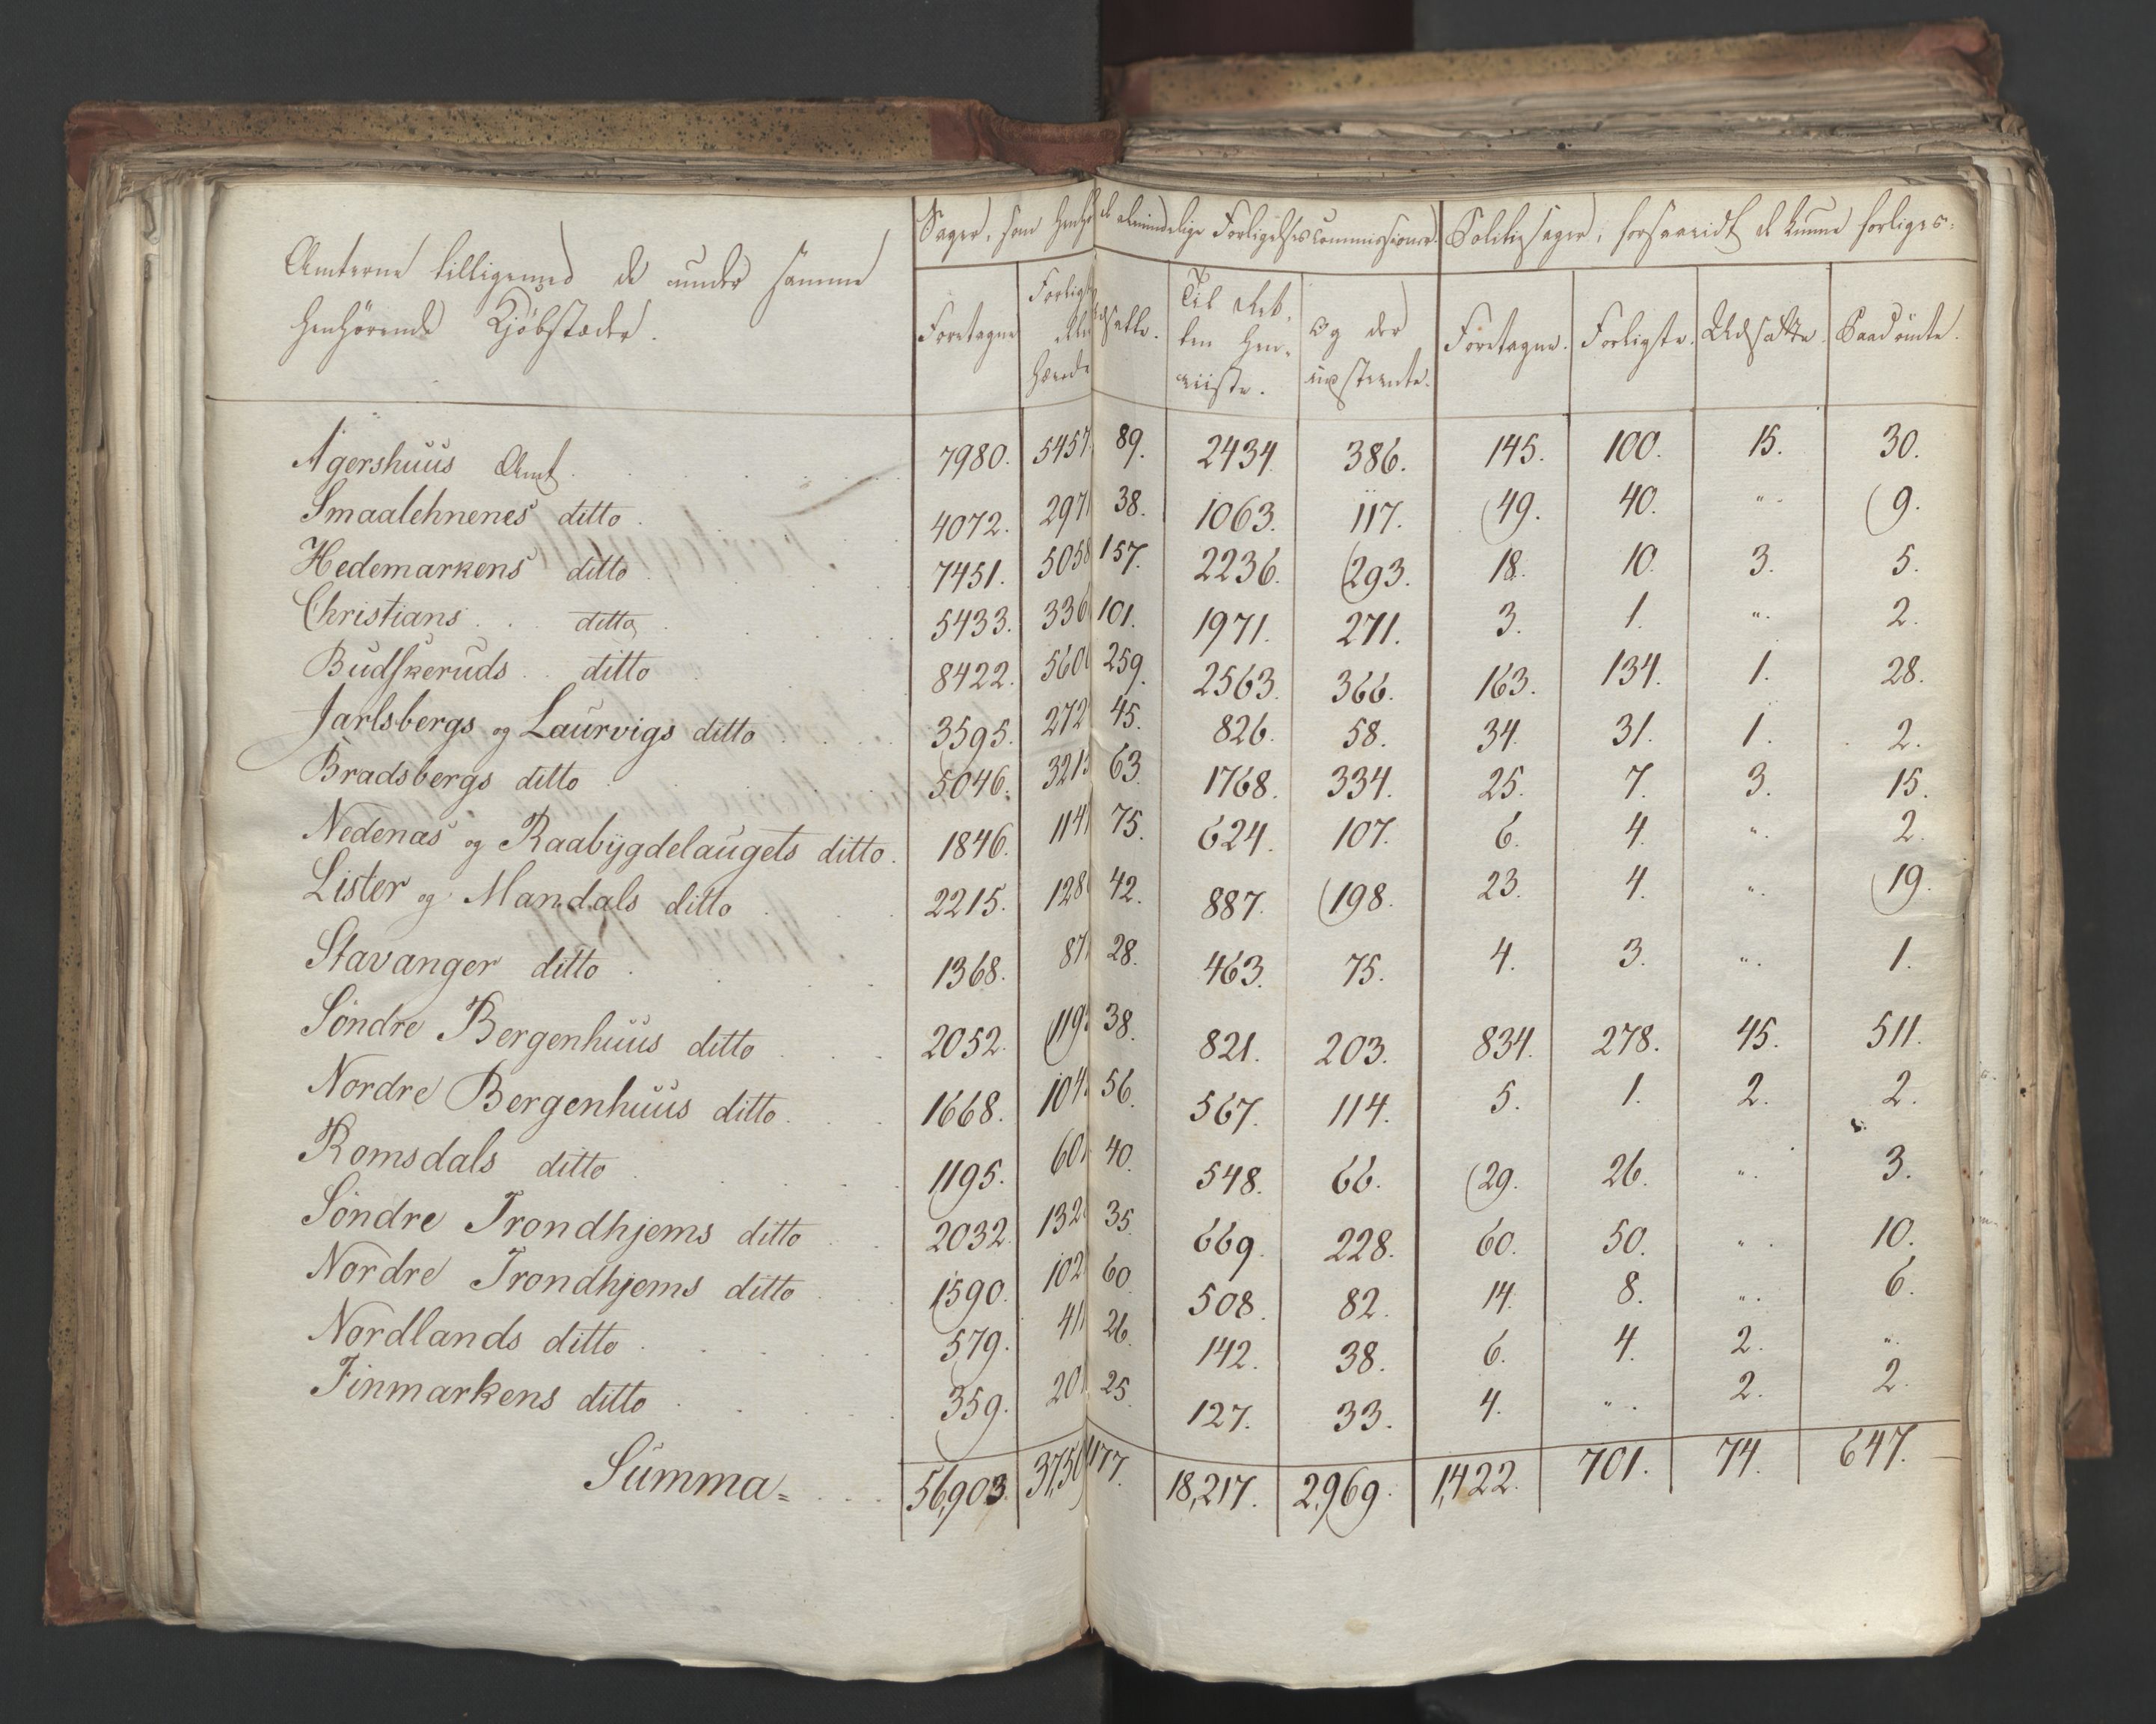 Amterne tilligemed de under samme
henhörende Kjöbstæder.
Sager, som henhø de almindelige Forligelsescommissioner. Politiesager, forsaavidt de kunne forliges.
Foretagne Forligte Udsatte. Til Ret- ten Hen- viiste. Og der Foretagne. Forligte. Udsatte. Paadömte.
Agershuus Amt. 7980. 5457 89. 2434. 386. 145. 100. 15. 30.
Smaalehnenes ditto. 4072. 297 38. 1063. 117. 49. 40. ". 9.
Hedemarkens ditto 7451. 5058 157. 2236. 293. 18. 10. 3. 5.
Christians ditto 5433. 336 101. 1971. 271. 3. 1. ". 2.
Budskeruds ditto 8422. 560 259. 2563. 366. 163. 134. 1. 28.
Jarlsbergs og Laurvigs ditto 3595. 272 45. 826. 58. 34. 31. 1. 2.
Bradsbergs ditto 5046. 3213 63. 1768. 334. 25. 7. 3. 15.
Nedenas og Raabygdelaugets ditto. 1846. 114 75. 624. 107. 6. 4. ". 2.
Lister og Mandals ditto 2215. 128 42. 887. 198. 23. 4. ". 19.
Stavanger ditto 1368. 87 28. 463. 75. 4. 3. ". 1.
Söndre Bergenhuus ditto 2052. 119 38. 821. 203. 834. 278. 45. 511.
Nordre Bergenhuus ditto. 1668. 104 56. 567. 114. 5. 1. 2. 2.
Romsdals ditto 1195. 60 40. 548. 66. 29. 26. ". 3.
Söndre Trondhjems ditto 2032. 132 35. 669. 228. 60. 50. ". 10.
Nordre Trondhjems ditto 1590. 102 60. 508. 82. 14. 8. ". 6.
Nordlands ditto 579. 41 26. 142. 38. 6. 4. 2. ".
Finmarkens ditto 359. 20 25. 127. 33. 4. ". 2. 2.
Summa = 56,903. 37,50 1177. 18,217. 2,969. 1,422. 701. 74. 647.